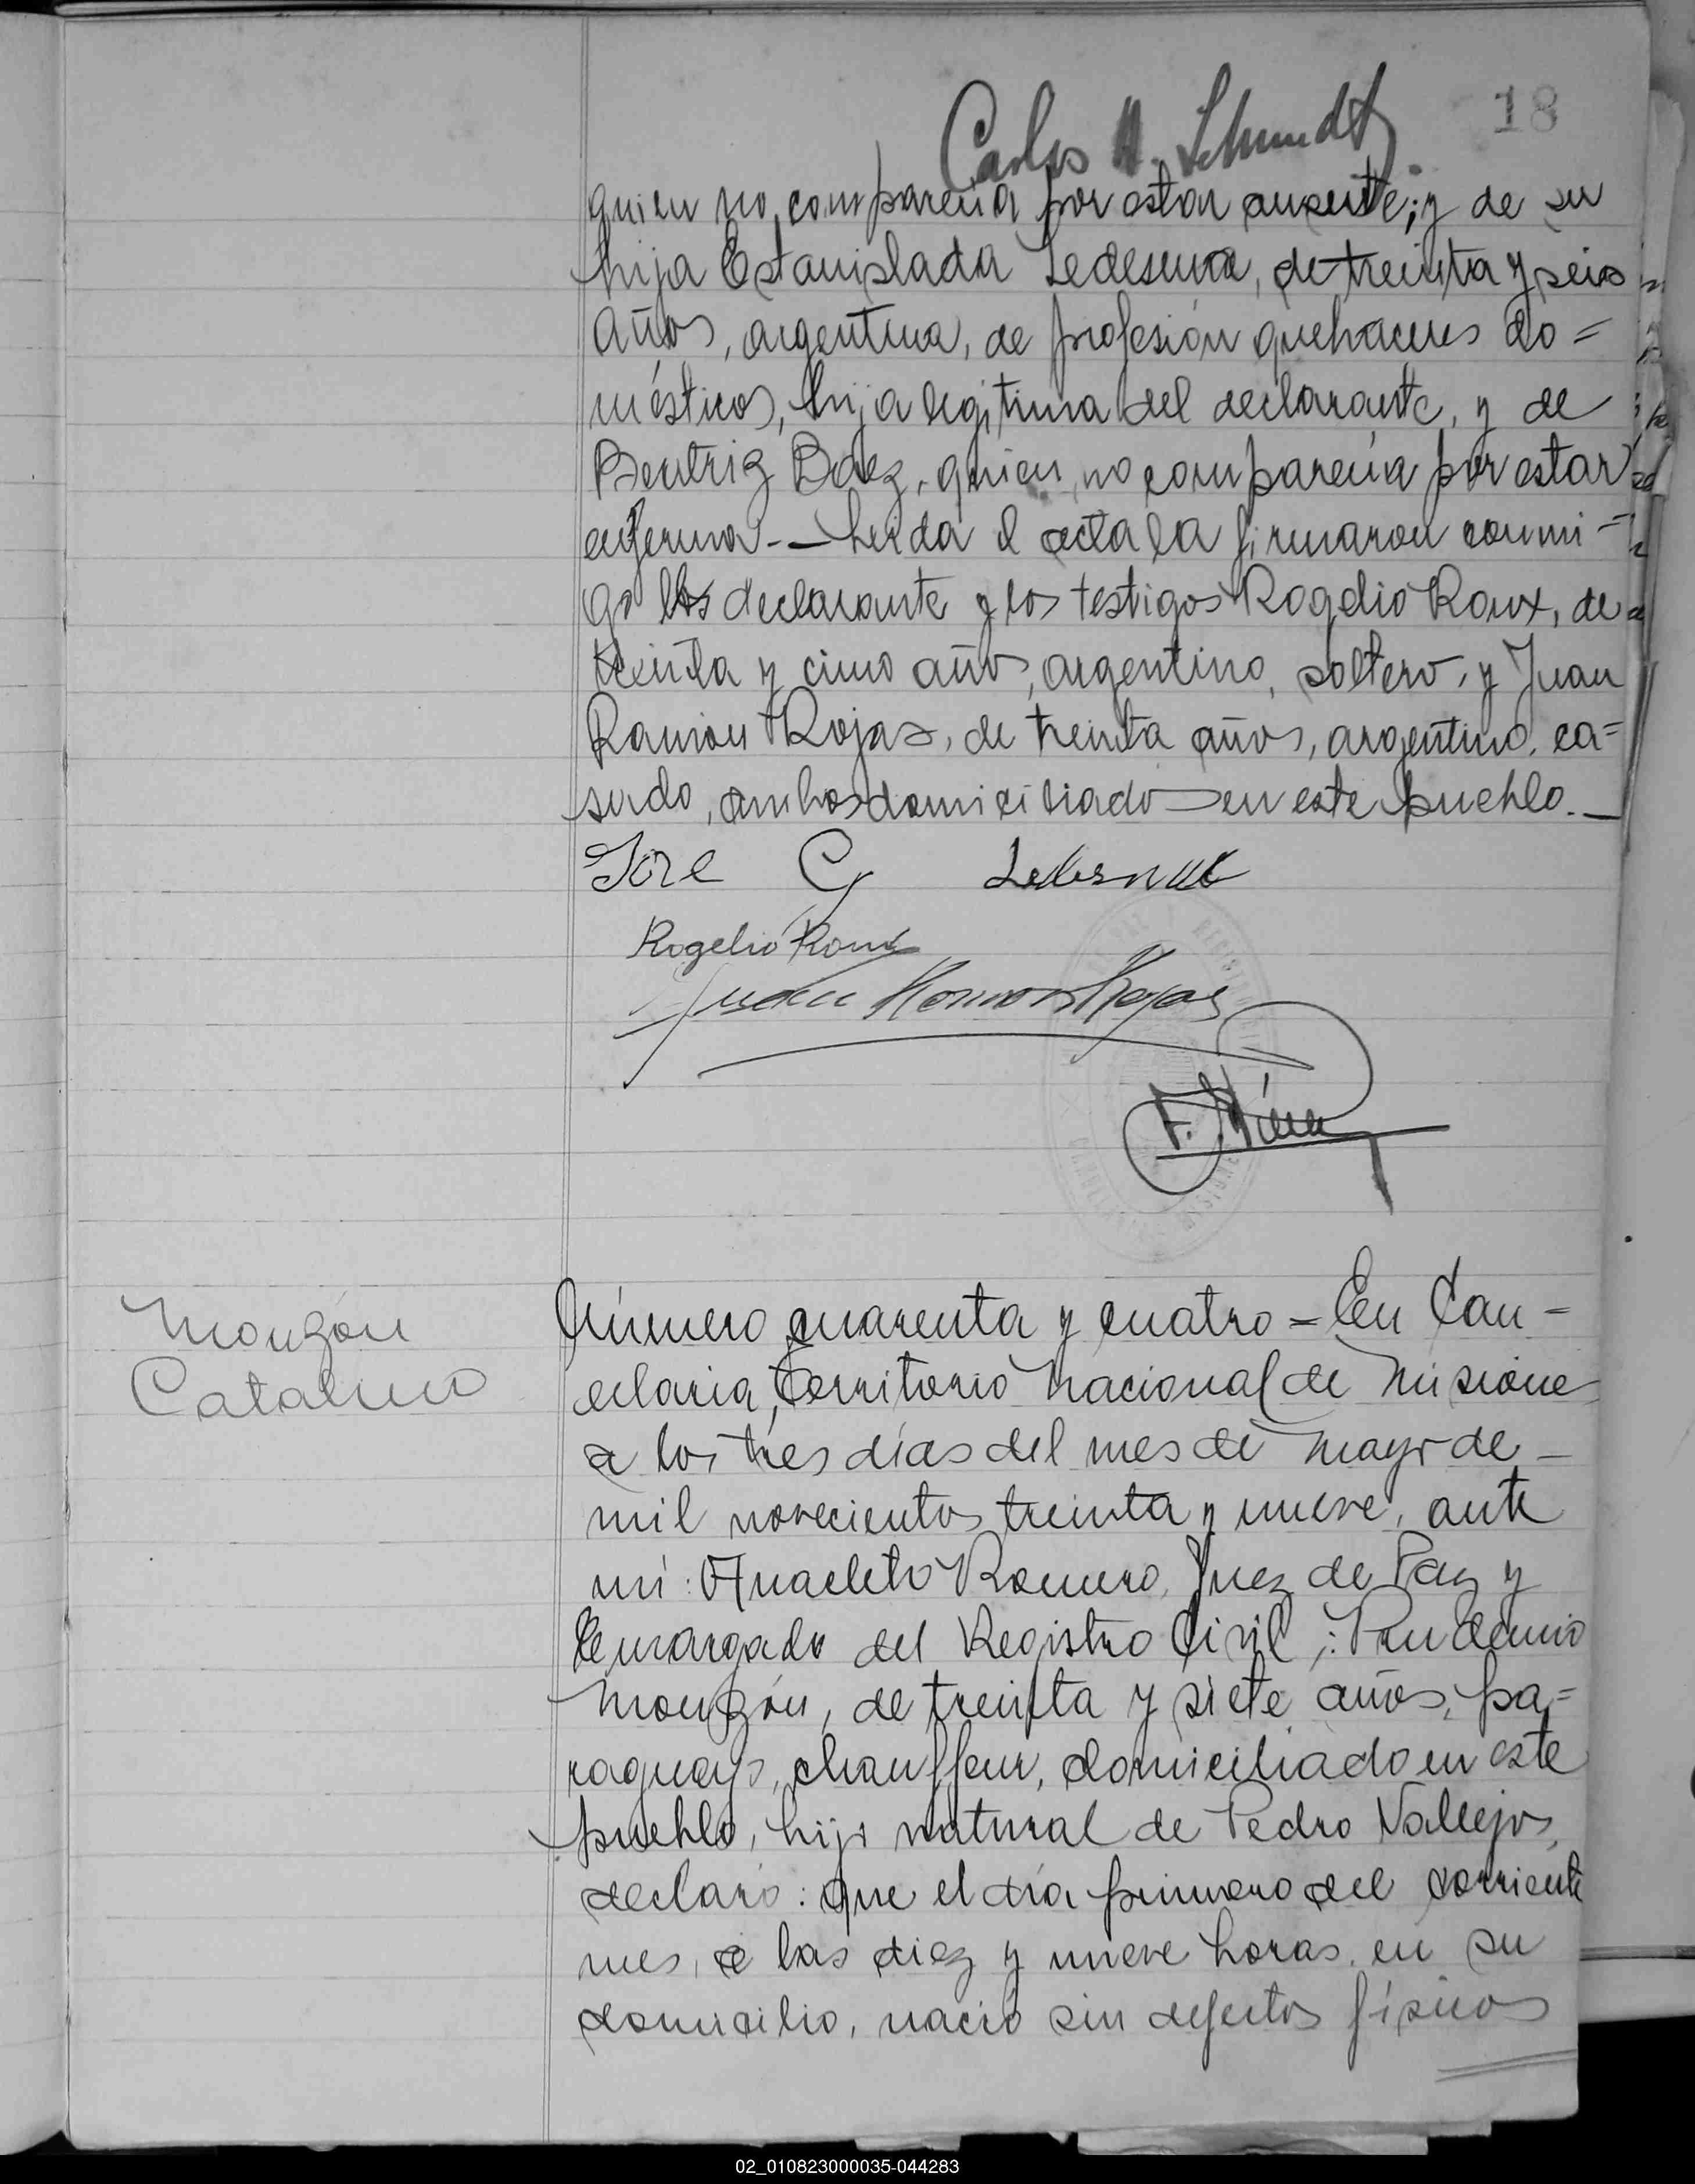 Carlos A. Schmidt
18
quien no comparecía por estar ausente; y de su
hija Estanislada Ledesma, de treinta y seis
años, argentina, de profesión quehaceres do=
mésticos, hija legitima del declarante, y de
Beatriz Baez, quien no comparecía por estar
enferma.- — Leida el acta la firmaron conmi-
go los declarante y los testigos Rogelio Roux, de
treinta y cinco años, argentino, soltero, y Juan
Ramón Rojas, de treinta años, argentino, ca=
sado, ambos domiciliados en este pueblo.—
José G Ledesma
Rogelio Roux
Juan Ramon Rojas
Monzón
Catalino
Número cuarenta y cuatro = En Can-
delaria, Territorio Nacional de Misiones
a los tres días del mes de Mayo de —
mil novecientos treinta y nueve, ante
mí: Anacleto Romero, Juez de Paz y
Encargado del Registro Civil;: Prudencio
Monzón, de treinta y siete años, pa=
raguayo, chauffeur, domiciliado en este
pueblo, hijo natural de Pedro Vallejos,
declaró: Que el día primero del corriente
mes, a las diez y nueve horas, en su
domicilio, nació sin defectos físicos
02_010823000035-044283